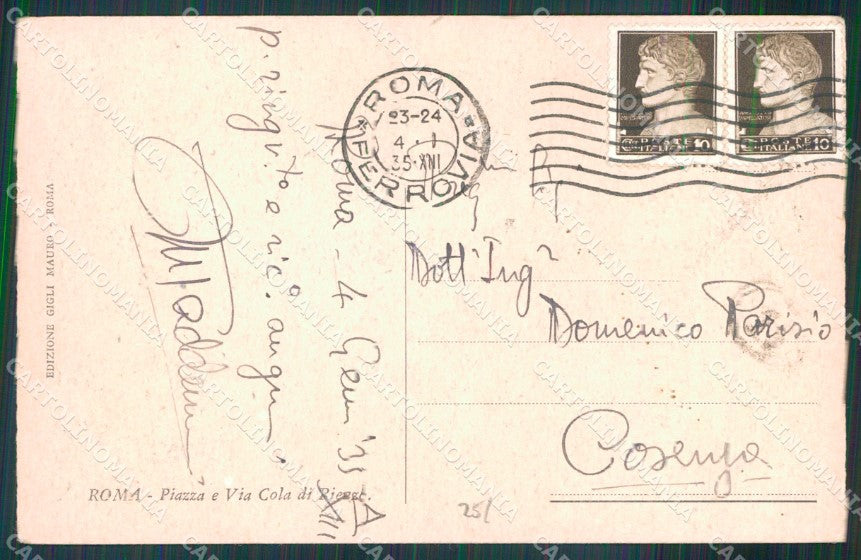 Roma - 4 Gen. '35
XIII
ringrto e rico. auguri
ROMA
23-24
4 - 1
35·XIII
FERROVIA
POSTE
ITALIANE
10
POSTE
ITALIANE
10
Dott Ingr
Domenico Parisio
Cosenza
25/
EDIZIONE GIGLI MAURO - ROMA
ROMA - Piazza e Via Cola di Rienzo.
CARTOLINOMANIA